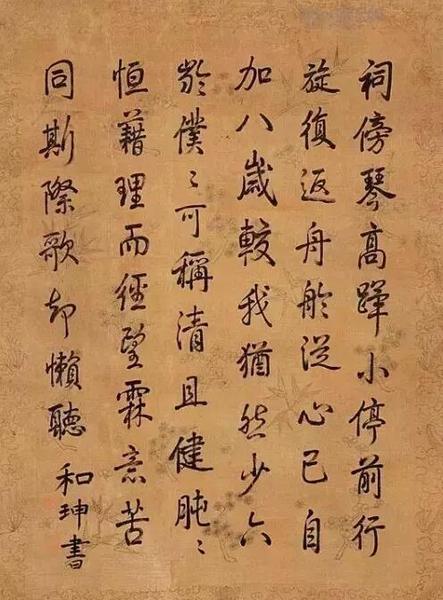 祠傍琴高蹕小停前行
旋復返舟舲従心已自
加八歲較我猶然少六
齡僕〻可稱清且健肫〻
恒藉理而經望霖意苦
同斯際歌却懶聽
和珅書